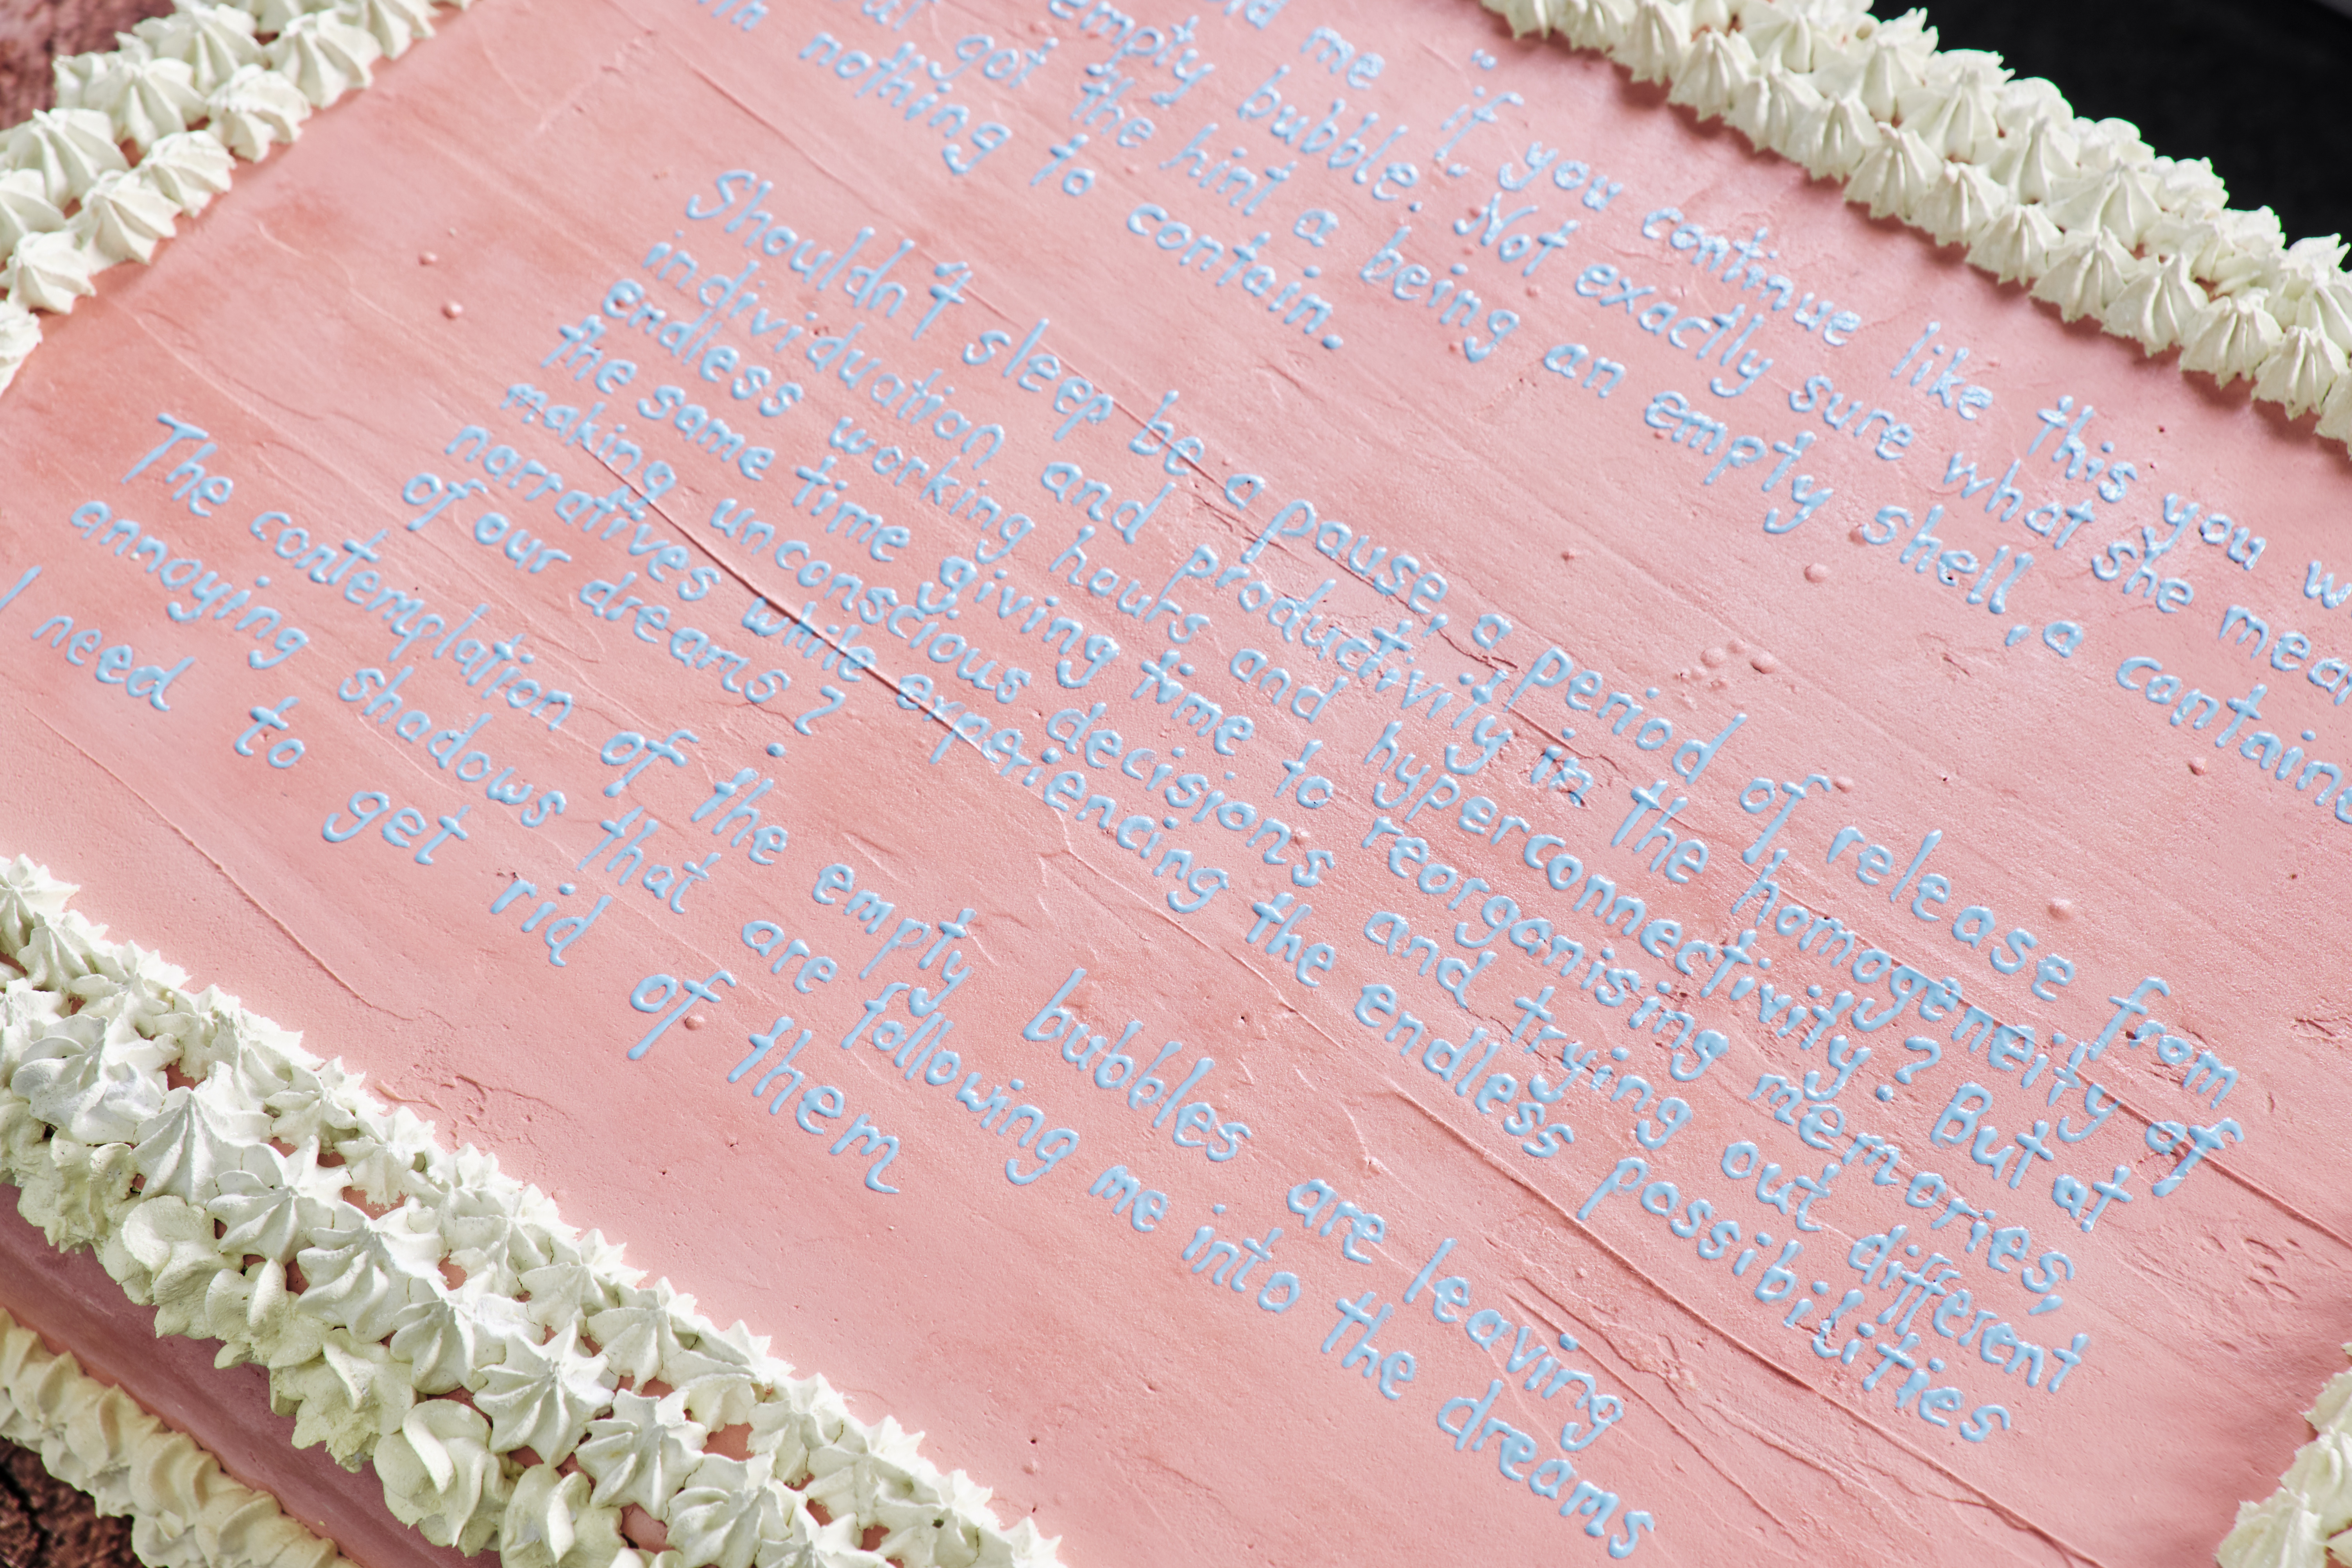 me “if you continue like this you
empty bubble. Not exactly sure what she
got the hint a being an empty shell, a
nothing to contain.
Shouldn't sleep be a pause, a period of release from
individuation and productivity in the homogeneity of
endless working hours and hyperconnectivity? But at
the same time giving time to reorganising memories,
making unconscious decisions and trying out different
narratives while experiencing the endless possibilities
of our dreams?
The contemplation of the empty bubbles are leaving
annoying shadows that are following me into the dreams
I need to get rid of them